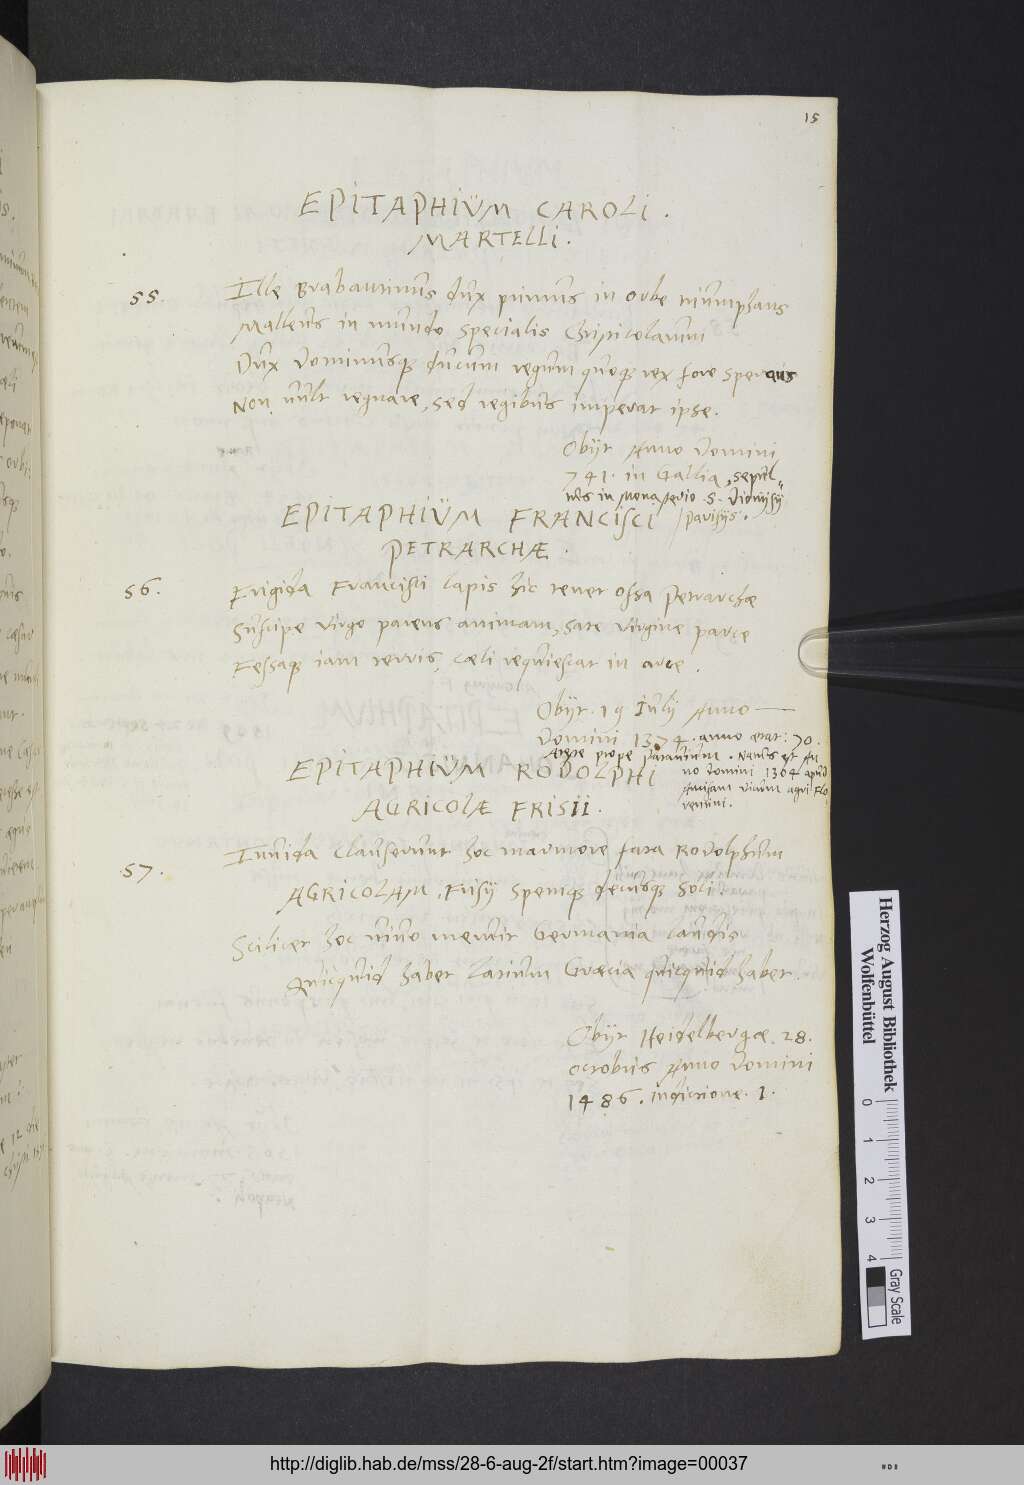 15
EPITAPHIUM CAROLI.
MARTELLI.
55. Ille Brabantinus dux primus in orbe triumphans
Malleus in mundo specialis Christicolarum
Dux dominusq; ducum regum quoq; rex fore spernens
Non vult regnare, sed regibus imperat ipse.
Obijt Anno Domini
741. in Gallia, sepul„
tus in monasterio .S. Dionysij
Parisijs.
EPITAPHIUM FRANCISCI
PETRARCHÆ.
56. Frigida Francisci lapis hic tenet ossa Petrarchæ
Suscipe virgo parens animam, sate virgine parce
Fessaq; iam terris, cæli requiescat in arce.
Obijt. 19 Iulij Anno
Domini 1374. anno ætat: 70.
Arquæ prope Patavium. Natus est An
no Domini 1304 apud
Ancisam vicum agri Flo
rentini.
EPITAPHIUM RODOLPHI
AGRICOLÆ FRISII.
57. Inuida clauserunt hoc marmore fata Rodolphum
AGRICOLAM. Frisij spemq; decusq; soli.
Scilicet hoc uiuo meruit Germania laudis
Quicquid habet Latium Græcia quicquid habet.
Obijt Heidelbergæ. 28.
octobris Anno Domini
1486. indictione. 1.
Herzog August Bibliothek
Wolfenbüttel
0 1 2 3 4
Gray Scale
http://diglib.hab.de/mss/28-6-aug-2f/start.htm?image=00037